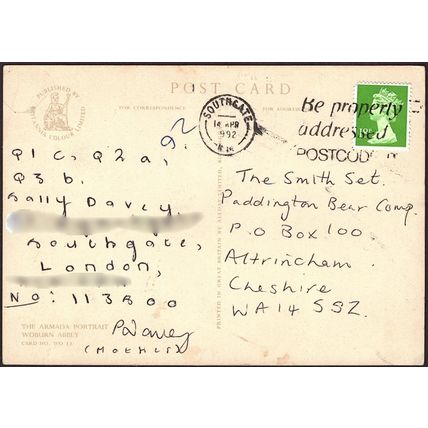 POST CARD
PUBLISHED BY
COLOUR LIMITED
FOR CORRESPONDENCE
FOR ADDRESS
SOUTHGATE
14 APR
1992
N.14
Be properly
addressed
POSTCODE
92
Q1 C, Q2 a,
Q3 b.
Sally Davey.
Southgate,
London,
NO: 113800
PDavey
(MOTHER)
The Smith Set.
Paddington Bear Comp.
P.O Box 100
Altrincham
Cheshire
WA14 5SZ.
THE ARMADA PORTRAIT
WOBURN ABBEY
PRINTED IN GREAT BRITAIN BY